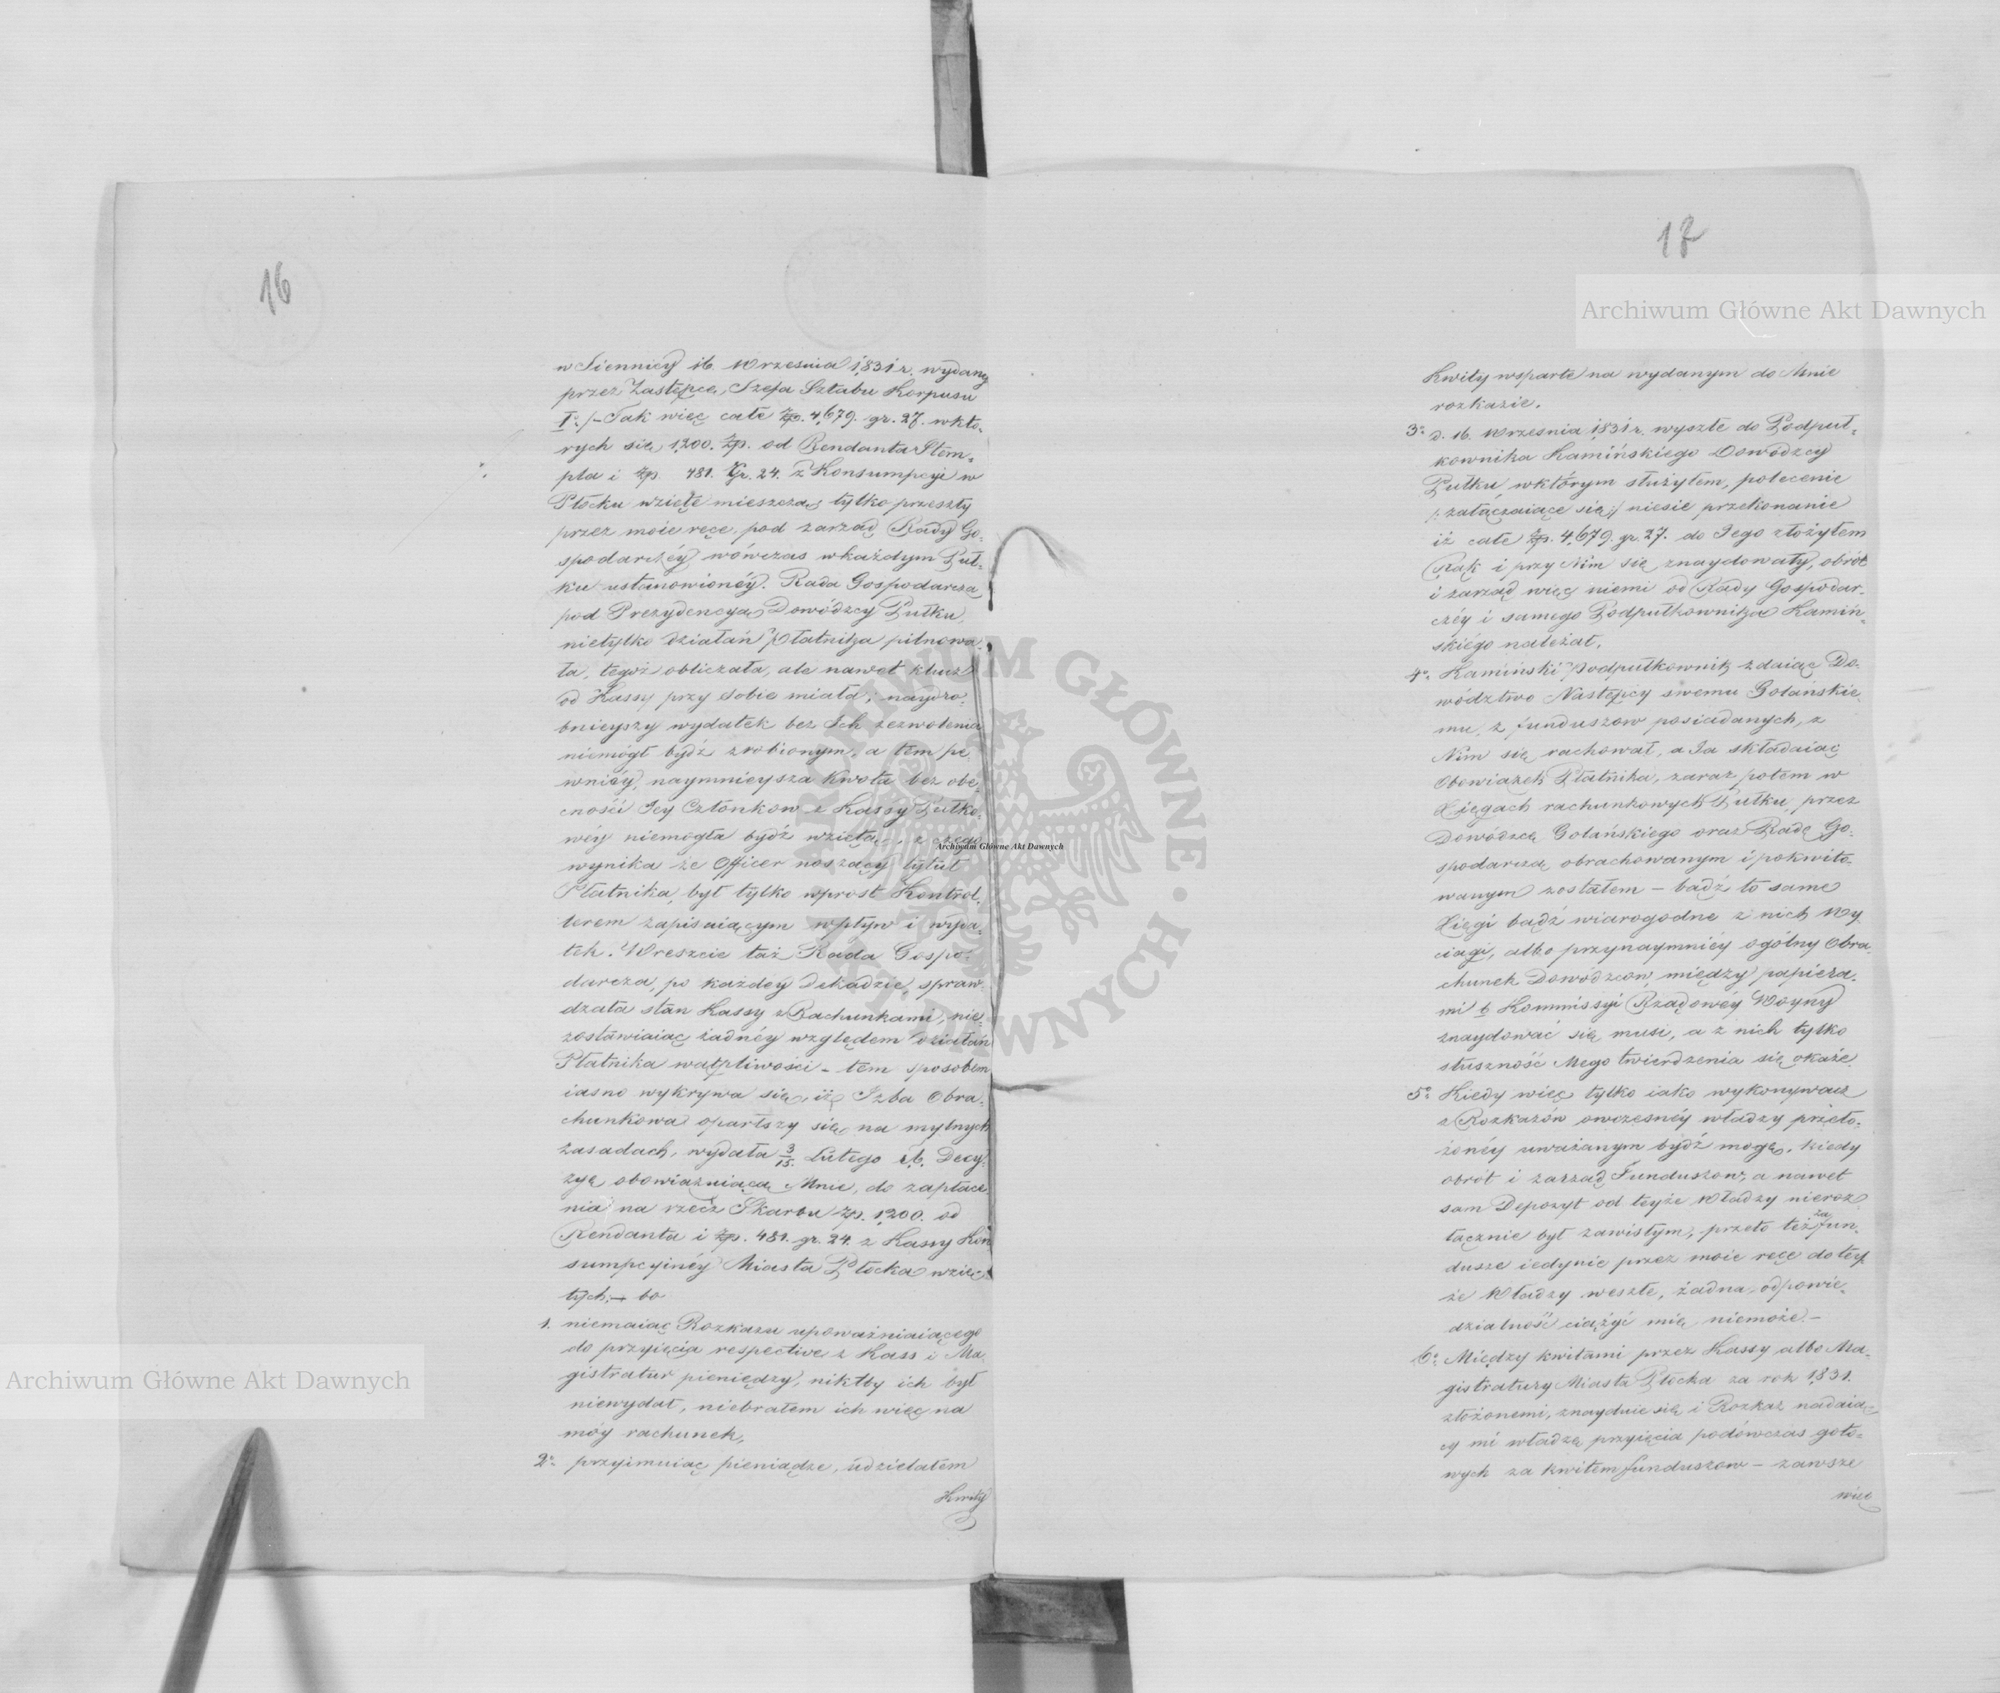 16
w Siennicy 16. Września 1831 r. wydany
przez Zastępcę, Szefa Sztabu Korpusu
I°./– Tak więc całe Złp. 4,679. gr. 27. wktó-
rych się 1,200. Złp. od Rendanta Stem-
pla i Złp. 481. Gr. 24. z Konsumpcyi w
Płocku wzięte mieszczą, tylko przeszły
przez moie ręce, pod zarząd Rady Go-
spodarczéy wówczas wkażdym Puł-
ku ustanowionéy. Rada Gospodarcza
pod Prezydencyą Dowódzcy Pułku
nietylko działań Płatnika pilnowa-
ła, tegoż obliczała, ale nawet klucz
od Kassy przy sobie miała; naydro-
bnieyszy wydatek bez Ich zezwolenia
niemógł bydź zrobionym, a tem pe-
wniéy, naymnieysza kwota bez obe-
cności Jey Członkow z Kassy Pułko-
wéy niemogła bydź wziętą, z czego
wynika że Officer noszący tytuł
Płatnika, był tylko wprost Kontrol-
lerem zapisuiącym wpływ i wyda-
tek. Wreszcie taż Rada Gospo-
darcza, po każdey Dekadzie, spraw-
dzała stan Kassy z Rachunkami, nie-
zostawiaiąc żadnéy względem działań
Płatnika wątpliwości – tem sposobem
iasno wykrywa się, iż Izba Obra-
chunkowa oparłszy się na mylnych
zasadach, wydała 3/15. Lutego r.b. Decy-
zyę obowiązuiącą Mnie, do zapłace-
nia na rzecz Skarbu Złp. 1,200. od
Rendanta i Złp. 481. gr. 24. z Kassy Kon-
sumpcyinéy Miasta Płocka wzię-
tych, – bo
1. niemaiąc Rozkazu upoważniaiącego
do przyięcia respective z Kass i Ma-
gistratur pieniędzy, niktby ich był
niewydał, niebrałem ich więc na
móy rachunek,
2° przyimuiąc pieniądze, udzielałem
Kwity
17
Kwity wsparte na wydanym do Mnie
rozkazie.
3° d. 16. Września 1831 r. wyszłe do Podpuł-
kownika Kamińskiego Dowódzcy
Pułku, wktórym służyłem, polecenie
/: załączaiące się :/ niesie przekonanie
iż całe Złp. 4,679. gr. 27. do Jego złożyłem
Rąk i przy Nim się znaydowały, obrót
i zarząd więc niemi od Rady Gospodar-
czéy i samego Podpułkownika Kamiń-
skiégo należał.
4° Kamiński Podpułkownik zdaiąc Do-
wództwo Następcy swemu Golańskie-
mu, z funduszow posiadanych, z
Nim się rachował, a Ja składaiąc
Obowiązek Płatnika, zaraz potem w
Xięgach rachunkowych Pułku, przez
Dowódzcę Golańskiego oraz Radę Go-
spodarczą obrachowanym i pokwito-
wanym zostałem – bądź to same
Xięgi bądź wiarogodne z nich Wy-
ciągi, albo przynaymniéy ogólny Obra-
chunek Dowódzcow, między papiera-
mi b. Kommissyi Rządowéy Woyny
znaydować się musi, a z nich tylko
słuszność Mego twierdzenia się okaże.
5° Kiedy więc tylko iako wykonywacz
z Rozkazów owczesnéy władzy przeło-
żonéy uważanym bydź mogę, kiedy
obrót i zarząd Funduszow, a nawet
sam Depozyt od teyże Władzy nieroz-
łącznie był zawisłym, przeto też za fun-
dusze iedynie przez moie ręce do tey-
że Władzy weszłe, żadna odpowie-
dzialność ciążyć mię niemoże. –
6° Między kwitami przez Kassy albo Ma-
gistratury Miasta Płocka za rok 1831.
złożonemi, znayduie się i Rozkaz nadaią-
cy mi władzę przyięcia podówczas goto-
wych za kwitem funduszow – zawsze
więc
Archiwum Główne Akt Dawnych
Archiwum Główne Akt Dawnych
Archiwum Główne Akt Dawnych
ARCHIWUM GŁÓWNE AKT DAWNYCH